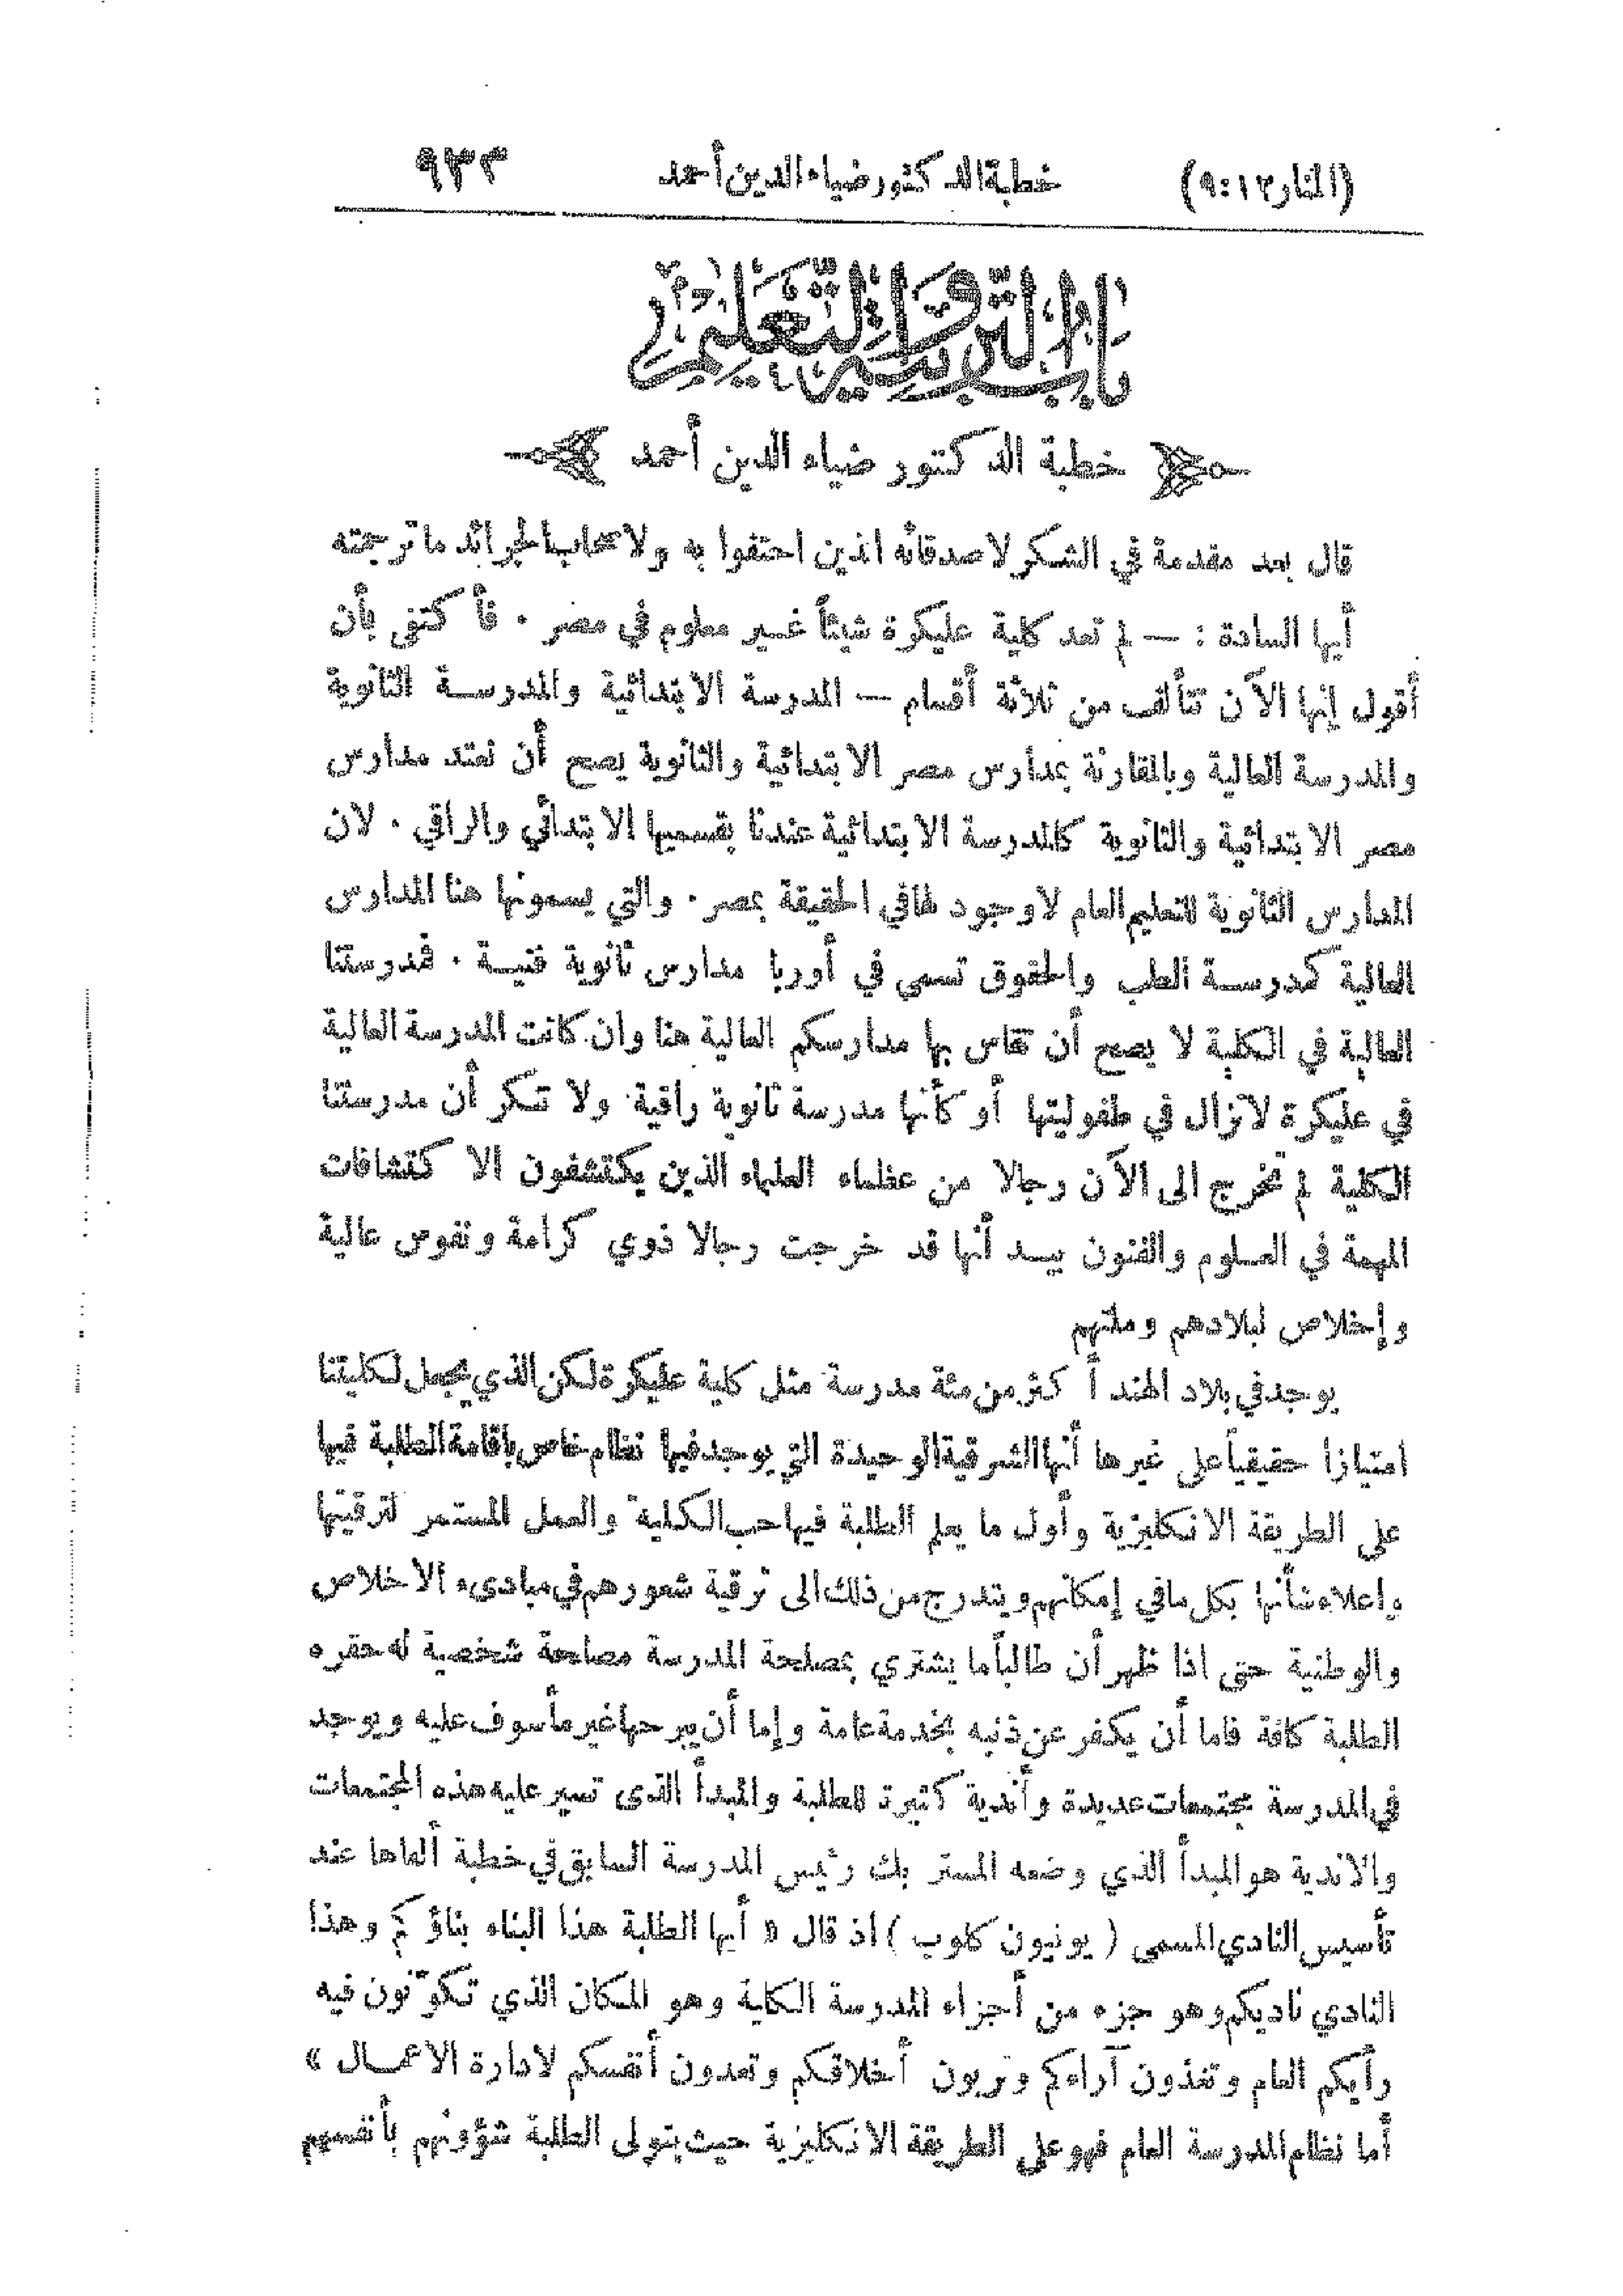 (المنار ١٢:٩) خطبة الدكتور ضياء الدين أحمد ٩٣٣
باب التربية والتعليم
خطبة الدكتور ضياء الدين أحمد
قال بعد مقدمة في الشكر لاصدقائه الذين احتفوا به ولاصحاب الجرائد ما ترجمته
أيها السادة : — لم تعد كلية عليكرة شيئاً غير معلوم في مصر . فأكتفي بأن
أقول إنها الآن تتألف من ثلاثة أقسام — المدرسة الابتدائية والمدرسة الثانوية
والمدرسة العالية وبالمقارنة بمدارس مصر الابتدائية والثانوية يصح أن نعتد مدارس
مصر الابتدائية والثانوية كالمدرسة الابتدائية عندنا بقسميها الابتدائي والراقي . لان
المدارس الثانوية للتعليم العام لاوجود لها في الحقيقة بمصر . والتي يسمونها هنا المدارس
العالية كمدرسة الطب والحقوق تسمى في أوربا مدارس ثانوية فنية . فمدرستنا
العالية في الكلية لا يصح أن تقاس بها مدارسكم العالية هنا وان كانت المدرسة العالية
في عليكرة لاتزال في طفوليتها أو كأنها مدرسة ثانوية راقية ولا ننكر أن مدرستنا
الكلية لم تخرج الى الآن رجالا من عظماء العلماء الذين يكتشفون الاكتشافات
المهمة في العلوم والفنون بيد أنها قد خرجت رجالا ذوي كرامة ونفوس عالية
وإخلاص لبلادهم وملتهم
يوجد في بلاد الهند أكثر من مئة مدرسة مثل كلية عليكرة لكن الذي يجعل لكليتنا
امتيازا حقيقياً على غيرها أنها الشرقية الوحيدة التي يوجد فيها نظام خاص باقامة الطلبة فيها
على الطريقة الانكليزية وأول ما يعلم الطلبة فيها حب الكلية والعمل المستمر لترقيتها
واعلاء شأنها بكل ما في إمكانهم ويتدرج من ذلك الى ترقية شعورهم في مبادىء الاخلاص
والوطنية حتى اذا ظهر أن طالباً ما يشتري بمصلحة المدرسة مصلحة شخصية له حقره
الطلبة كافة فاما أن يكفر عن ذنبه بخدمة عامة وإما أن يبرحها غير مأسوف عليه ويوجد
في المدرسة مجتمعات عديدة وأندية كثيرة للطلبة والمبدأ الذى تسير عليه هذه المجتمعات
والاندية هو المبدأ الذي وضعه المستر بك رئيس المدرسة السابق في خطبة ألقاها عند
تأسيس النادي المسمى ( يونيون كلوب ) اذ قال « أيها الطلبة هذا البناء بناؤكم وهذا
النادي ناديكم وهو جزء من أجزاء المدرسة الكلية وهو المكان الذي تكوّنون فيه
رأيكم العام وتغذون آراءكم وتربون أخلاقكم وتعدون أنفسكم لادارة الاعمال »
أما نظام المدرسة العام فهو على الطريقة الانكليزية حيث يتولى الطلبة شؤونهم بأنفسهم